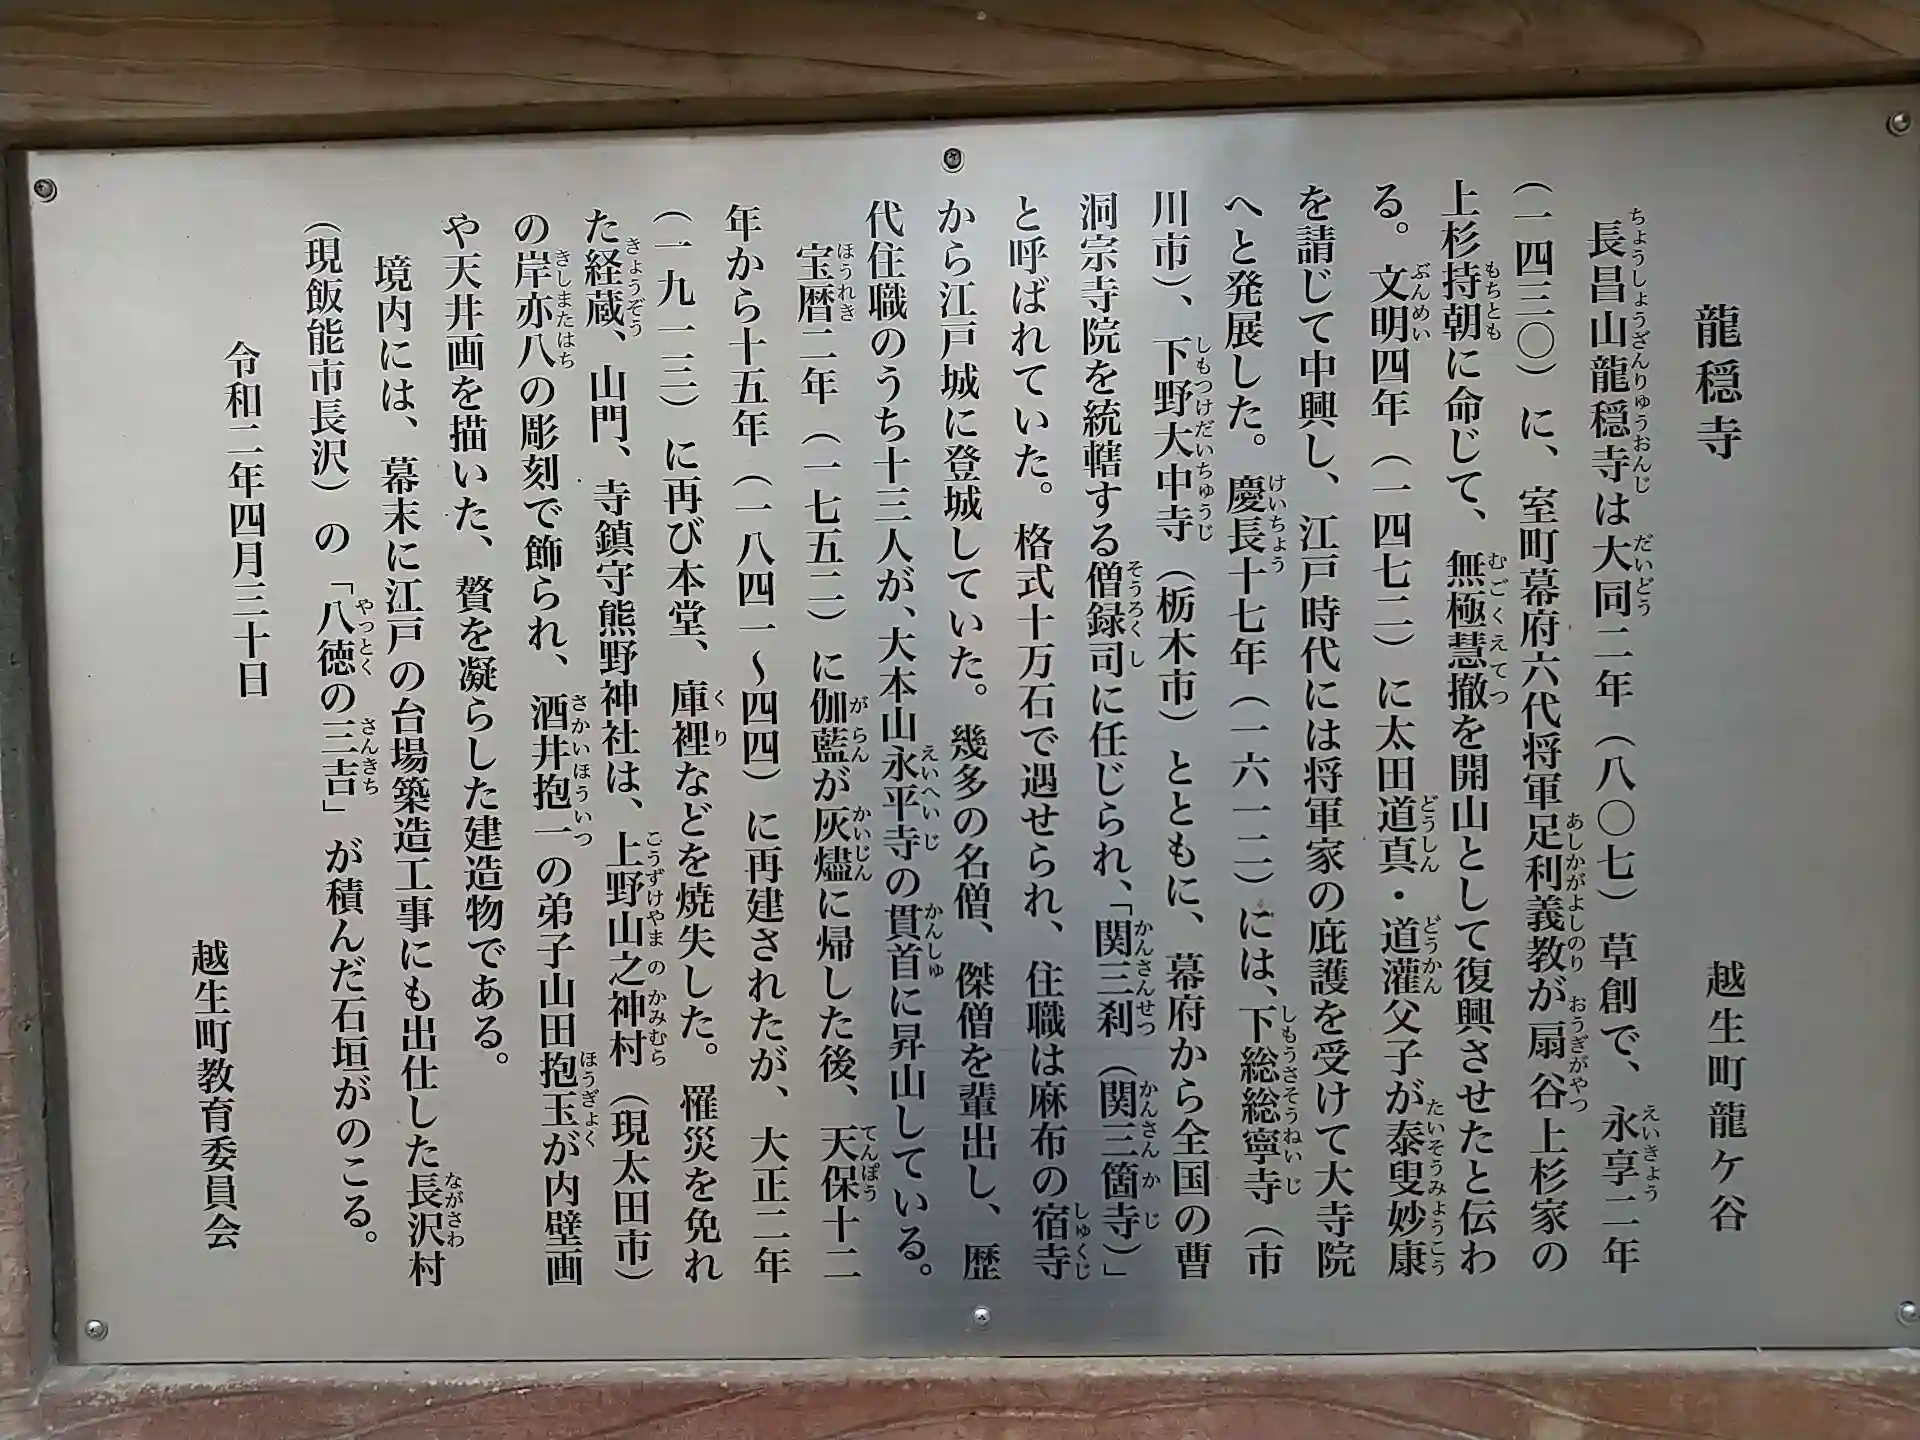 龍穏寺　越生町龍ケ谷
長昌山龍穏寺は大同二年（八〇七）草創で、永享二年
（一四三〇）に、室町幕府六代将軍足利義教が扇谷上杉家の
上杉持朝に命じて、無極慧徹を開山として復興させたと伝わ
る。文明四年（一四七二）に太田道真・道灌父子が泰叟妙康
を請じて中興し、江戸時代には将軍家の庇護を受けて大寺院
へと発展した。慶長十七年（一六一二）には、下総総寧寺（市
川市）、下野大中寺（栃木市）とともに、幕府から全国の曹
洞宗寺院を統轄する僧録司に任じられ、「関三刹（関三箇寺）」
と呼ばれていた。格式十万石で遇せられ、住職は麻布の宿寺
から江戸城に登城していた。幾多の名僧、傑僧を輩出し、歴
代住職のうち十三人が、大本山永平寺の貫首に昇山している。
宝暦二年（一七五二）に伽藍が灰燼に帰した後、天保十二
年から十五年（一八四一〜四四）に再建されたが、大正二年
（一九一三）に再び本堂、庫裡などを焼失した。罹災を免れ
た経蔵、山門、寺鎮守熊野神社は、上野山之神村（現太田市）
の岸亦八の彫刻で飾られ、酒井抱一の弟子山田抱玉が内壁画
や天井画を描いた、贅を凝らした建造物である。
境内には、幕末に江戸の台場築造工事にも出仕した長沢村
（現飯能市長沢）の「八徳の三吉」が積んだ石垣がのこる。
令和二年四月三十日
越生町教育委員会